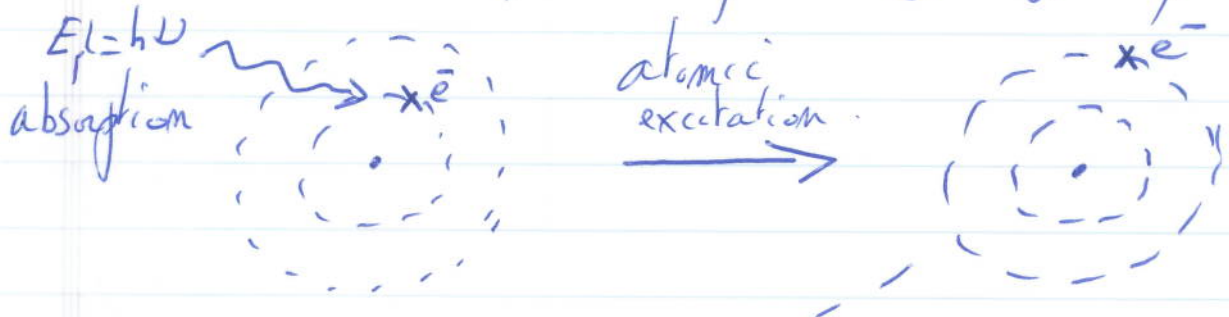 E₁=hν
absorption
e⁻
atomic
excitation.
e⁻